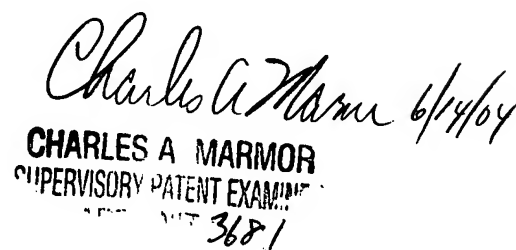 Charles A Marmor 6/14/04
CHARLES A MARMOR
SUPERVISORY PATENT EXAMINE
3681